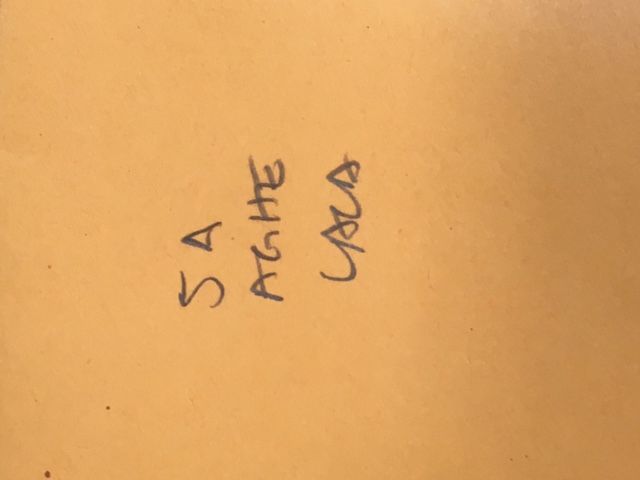 5A
AGHE
LALA